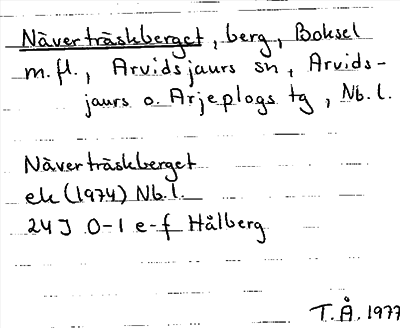 Näverträskberget, berg, Boksel
m.fl., Arvidsjaurs sn, Arvids-
jaurs o. Arjeplogs tg, Nb.l.
Näverträskberget
ek (1974) Nb.l.
24J 0-1 e-f Hålberg
T.Å. 1977